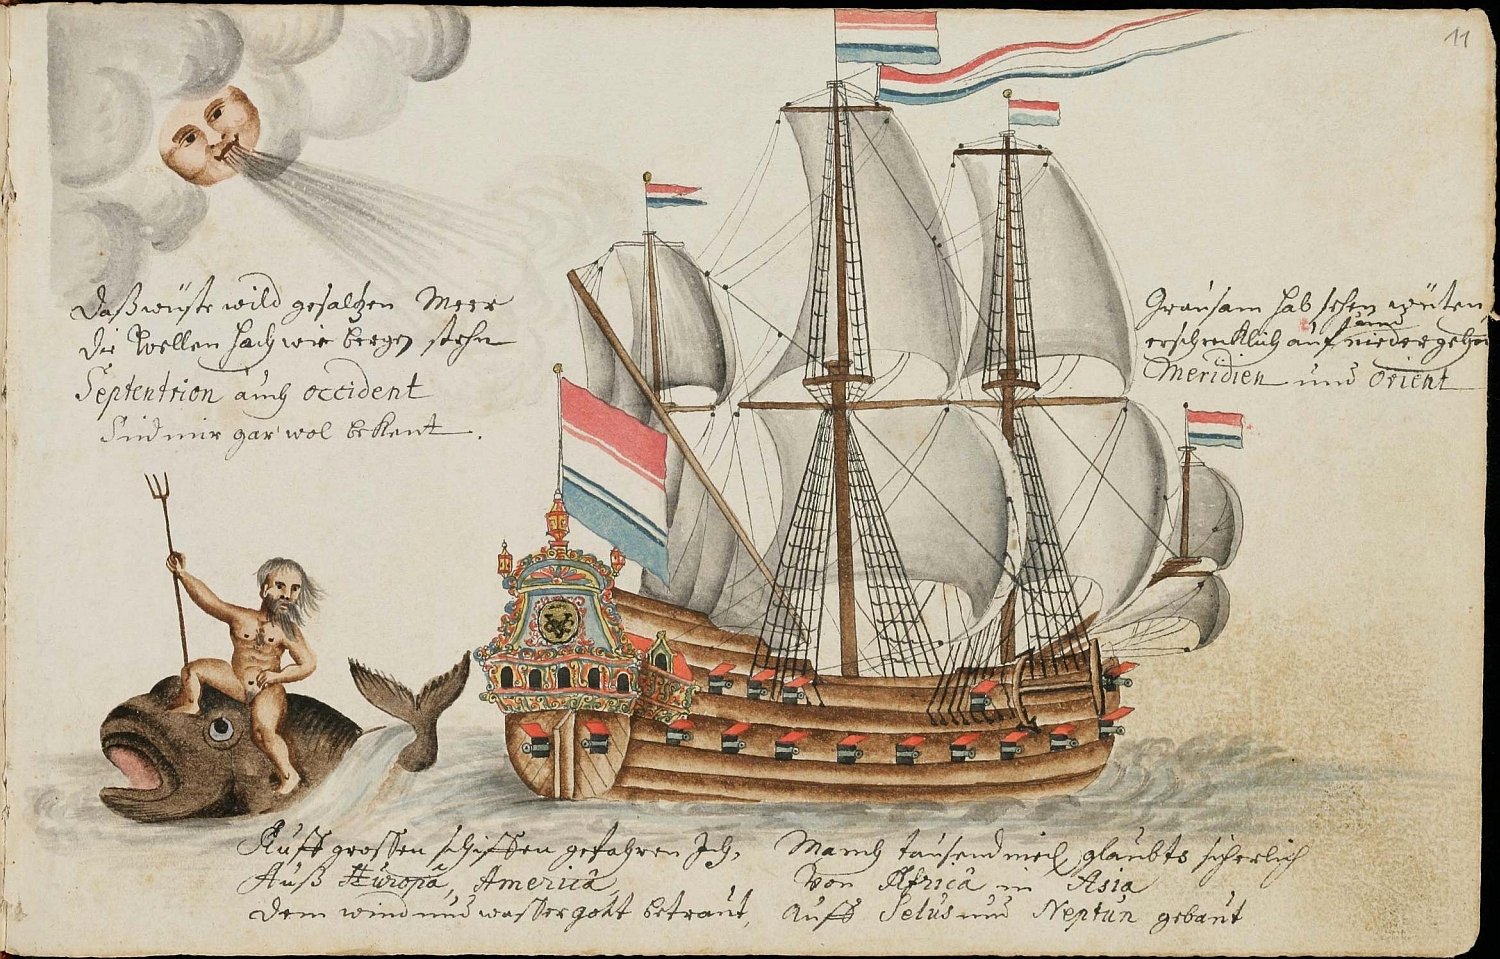 11
Daß wüste wild gesaltzen Meer
die Wellen hoch wie bergen stehn
Septentrion auch occident
Sind mir gar wol bekent.
Grausam hab sehen wüten
erschrecklich auf und niedergehn
Meridien und Orient
Auff grossen schiffen gefahren Ich,
Auß Europâ, Americâ,
dem wind und wasser gott betraut,
Manch tausend meil, glaubts sicherlich
Von Africâ in Asia
Auff und Neptun gebaut